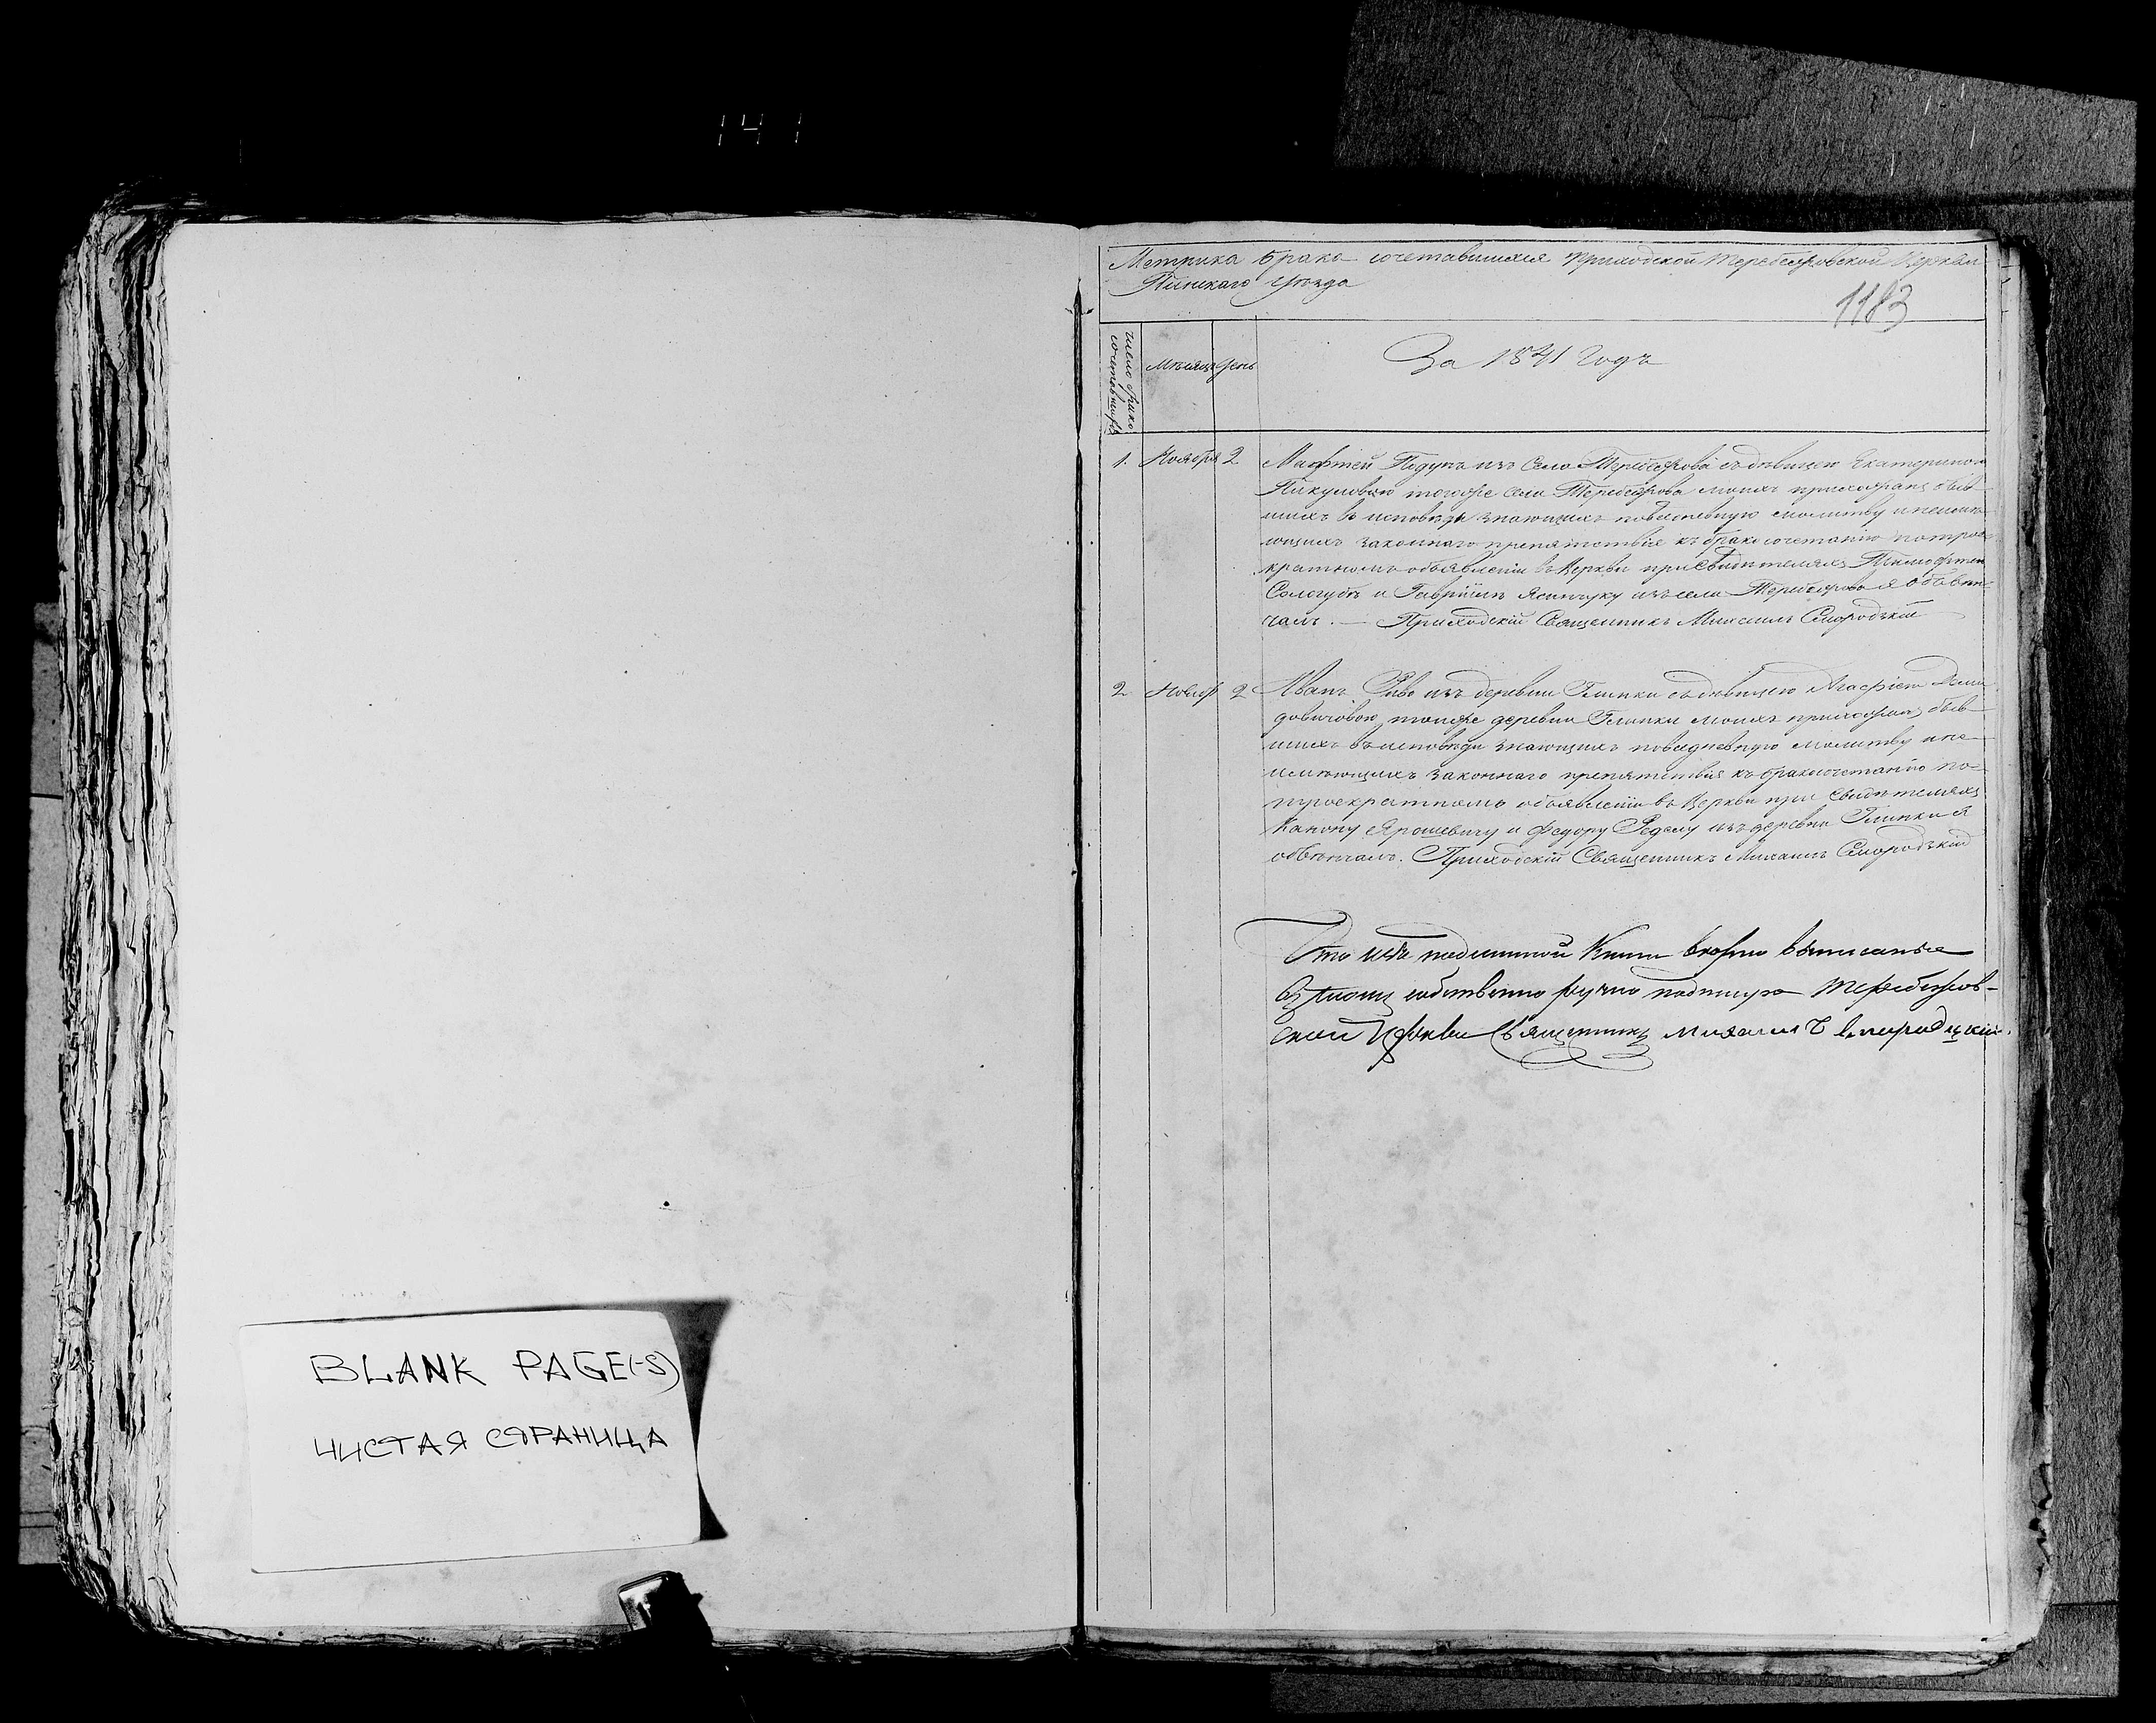 141
Метрика брако сочетавшихся приходской Теребежовской Церкви
Пинскаго уѣзда
1183
число брако
сочетавшихъ
Мѣсяцъ
День
За 1841 Годъ
1. Ноября 2 Матфей Подунъ изъ Село Теребежова съ дѣвицею Екатериною
Пикуловною тогоже села Теребежова моихъ прихожанъ быв-
шихъ въ исповѣди знающихъ повседневную молитву и неимѣ-
ющихъ законнаго препятствія къ бракосочетанію по трое-
кратномъ объявленіи въ Церкви при Свидѣтеляхъ Тимофею
Сологубѣ и Гавріилѣ Ясинчуку изъ села Теребежова я обвѣн-
чалъ. — Приходскій Священникъ Михаилъ Смородскій
2 Ноябр 2 Иванъ изъ деревни Глинки съ дѣвицею Агафіею Деми-
довичовою тоейже деревни Глинки моихъ прихожанъ быв-
шихъ въ исповѣди знающихъ повседневную молитву и не-
имѣющихъ законнаго препятствія къ бракосочетанію по-
троекратномъ объявленіи въ Церкви при Свидѣтеляхъ
Канону Ярошевичу и Федору Редему изъ деревни Глинки я
обвѣнчалъ. Приходскій Священникъ Михаилъ Смородскій
Что изъ подлинной Книги вѣрно выписанъ
въ томъ собственно ручно подпишуся Теребежов-
ской Церкви Священникъ Михаилъ Смородцкій.
BLANK PAGE(-S)
ЧИСТАЯ СТРАНИЦА